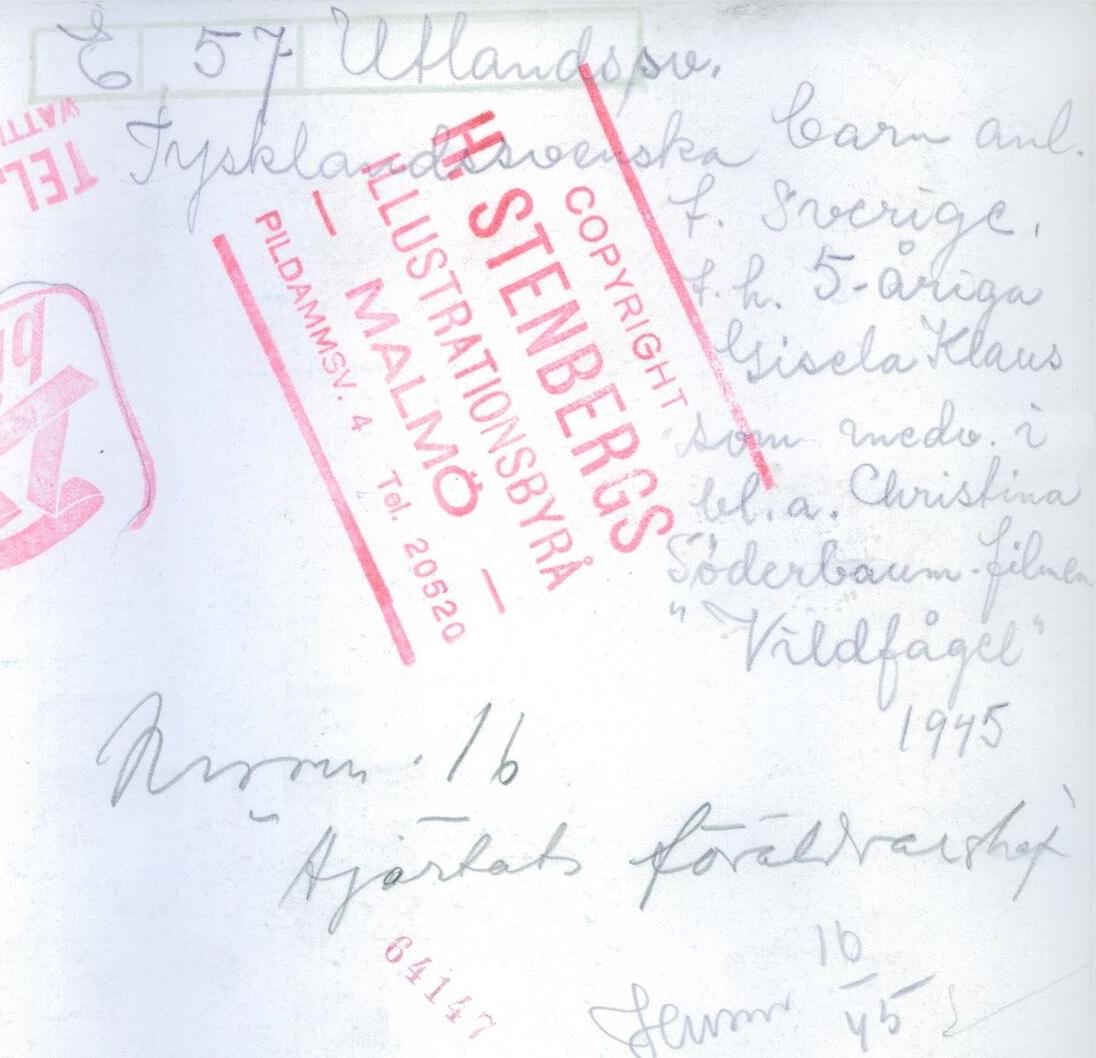 E 57 Utlandssv.
Tysklandssvenska barn anl.
t. Sverige.
t.h. 5-åriga
Gisela Klaus
som medv. i
bl.a. Christina
Söderbaum-filmen
"Vildfågel"
1945
COPYRIGHT
H. STENBERGS
ILLUSTRATIONSBYRÅ
— MALMÖ —
PILDAMMSV. 4 Tel. 20520
TEL.
16
Hjärtats
64147
16
45